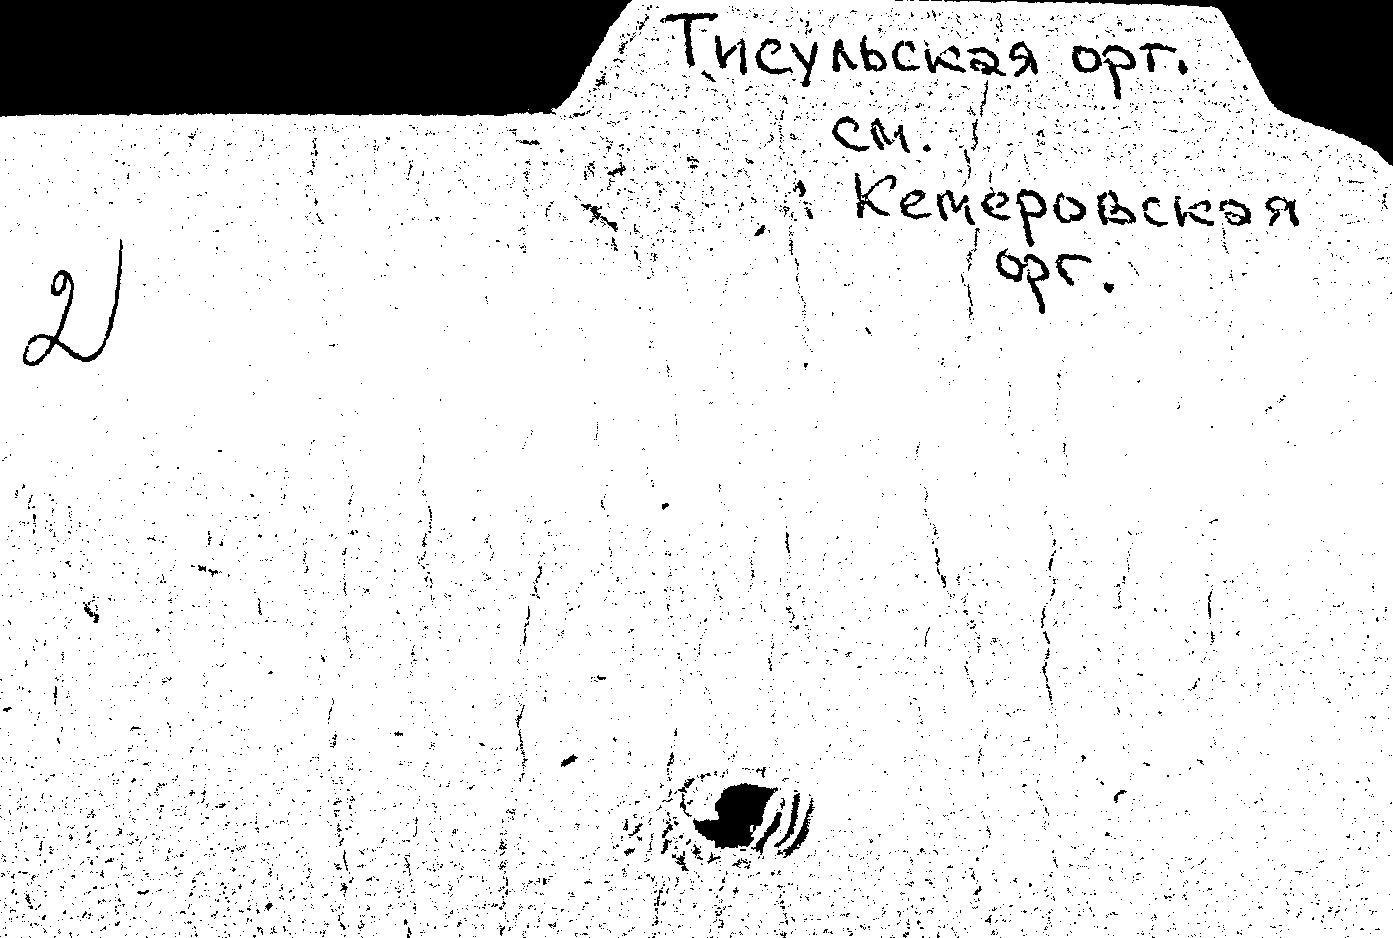 Тисульская орг.
см.
Кемеровская
орг.
2